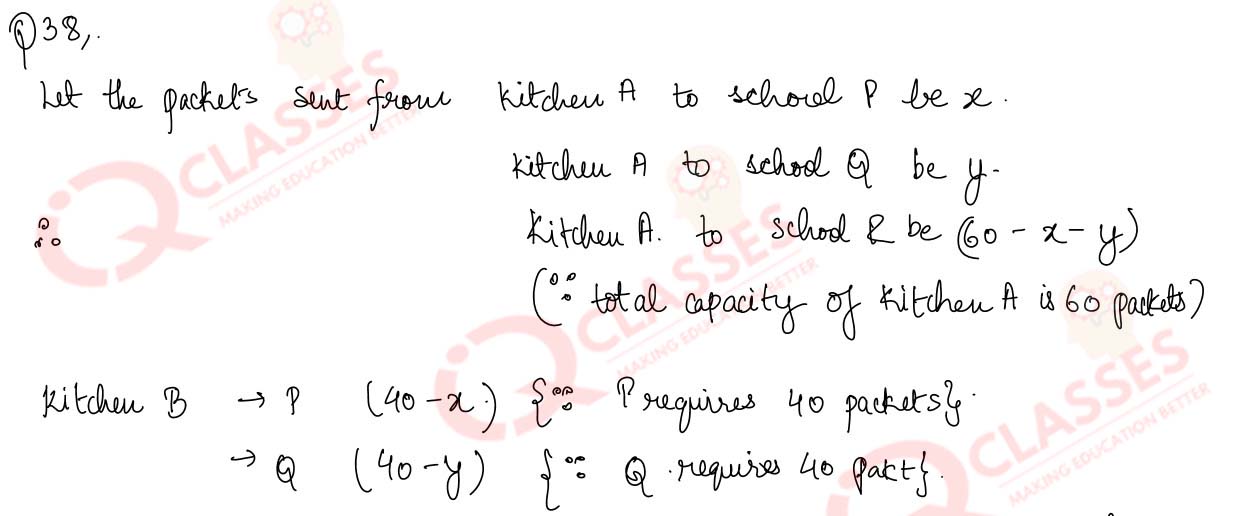 Q38,.
Let the packets sent from kitchen A to school P be x.
kitchen A to school Q be y.
∴ kitchen A. to school R be (60 - x - y)
(∵ total capacity of kitchen A is 60 packets)
kitchen B → P (40 - x) {∵ P requires 40 packets}.
→ Q (40 - y) {∵ Q requires 40 pakt}.
IQ CLASSES
MAKING EDUCATION BETTER
IQ CLASSES
MAKING EDUCATION BETTER
IQ CLASSES
MAKING EDUCATION BETTER